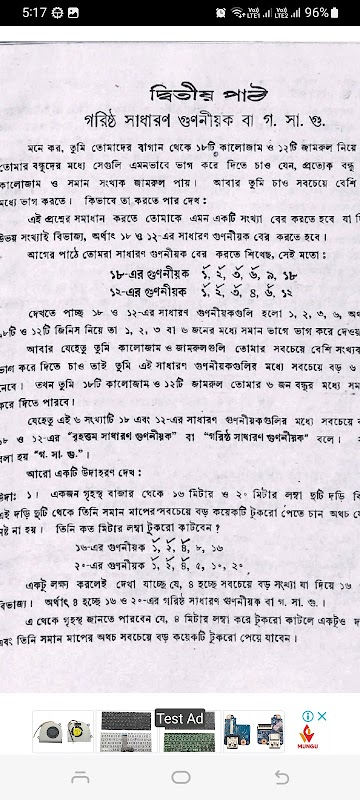 5:17
VoLTE1 VoLTE2 96%
দ্বিতীয় পাঠ
গরিষ্ঠ সাধারণ গুণনীয়ক বা গ. সা. গু.
মনে কর, তুমি তোমাদের বাগান থেকে ১৮টি কালোজাম ও ১২টি জামরুল নিয়ে
তোমার বন্ধুদের মধ্যে সেগুলি এমনভাবে ভাগ করে দিতে চাও যেন, প্রত্যেক বন্ধু
কালোজাম ও সমান সংখ্যক জামরুল পায়। আবার তুমি চাও সবচেয়ে বেশি
মধ্যে ভাগ করতে। কিভাবে তা করতে পার দেখ :
এই প্রশ্নের সমাধান করতে তোমাকে এমন একটি সংখ্যা বের করতে হবে যা
উভয় সংখ্যাই বিভাজ্য, অর্থাৎ ১৮ ও ১২-এর সাধারণ গুণনীয়ক বের করতে হবে।
আগের পাঠে তোমরা সাধারণ গুণনীয়ক বের করতে শিখেছ, সেই মতো :
১৮-এর গুণনীয়ক ১, ২, ৩, ৬, ৯, ১৮
১২-এর গুণনীয়ক ১, ২, ৩, ৪, ৬, ১২
দেখতে পাচ্ছ ১৮ ও ১২-এর সাধারণ গুণনীয়কগুলি হলো ১, ২, ৩, ৬,
১৮টি ও ১২টি জিনিস নিয়ে তা ১, ২, ৩ বা ৬ জনের মধ্যে সমান ভাগে ভাগ করে
আবার যেহেতু তুমি কালোজাম ও জামরুলগুলি তোমার সবচেয়ে বেশি
ভাগ করে দিতে চাও তাই তুমি এই সাধারণ গুণনীয়কগুলির মধ্যে সবচেয়ে বড় ৬
নেবে। তখন তুমি ১৮টি কালোজাম ও ১২টি জামরুল তোমার ৬ জন বন্ধুর মধ্যে
করে দিতে পারবে।
যেহেতু এই ৬ সংখ্যাটি ১৮ এবং ১২-এর সাধারণ গুণনীয়কগুলির মধ্যে সবচেয়ে
১৮ ও ১২-এর "বৃহত্তম সাধারণ গুণনীয়ক" বা "গরিষ্ঠ সাধারণ গুণনীয়ক" বলে।
বলা হয় "গ. সা. গু."।
আরো একটি উদাহরণ দেখ :
উদা: ১। একজন গৃহস্থ বাজার থেকে ১৬ মিটার ও ২০ মিটার লম্বা দুটি দড়ি
এই দড়ি দুটি থেকে তিনি সমান মাপের সবচেয়ে বড় কয়েকটি টুকরো পেতে চান অথচ
নষ্ট না হয়। তিনি কত মিটার লম্বা টুকরো কাটবেন ?
১৬-এর গুণনীয়ক ১, ২, ৪, ৮, ১৬
২০-এর গুণনীয়ক ১, ২, ৪, ৫, ১০, ২০
একটু লক্ষ্য করলেই দেখা যাচ্ছে যে, ৪ হচ্ছে সবচেয়ে বড় সংখ্যা যা দিয়ে ১৬
বিভাজ্য। অর্থাৎ ৪ হচ্ছে ১৬ ও ২০-এর গরিষ্ঠ সাধারণ গুণনীয়ক বা গ. সা. গু.।
এ থেকে গৃহস্থ জানতে পারবেন যে, ৪ মিটার লম্বা করে টুকরো কাটলে একটুও
এবং তিনি সমান মাপের অথচ সবচেয়ে বড় কয়েকটি টুকরো পেয়ে যাবেন।
Test Ad
MUNGU